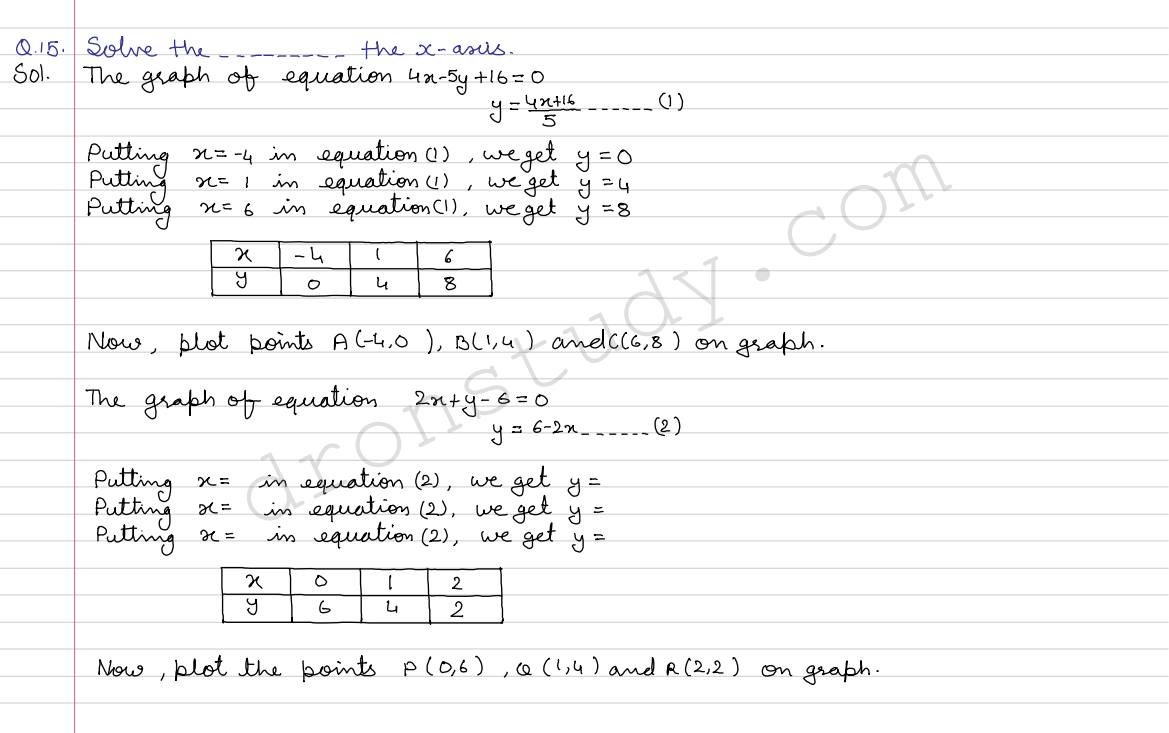 Q.15. Solve the _ _ _ _ _ _ _ _ _ the x-axis.
Sol. The graph of equation 4x-5y+16=0
y = (4x+16)/5 ------ (1)
Putting x=-4 in equation (1), we get y=0
Putting x= 1 in equation (1), we get y=4
Putting x= 6 in equation (1), we get y=8
x -4 1 6
y 0 4 8
Now, plot points A(-4,0), B(1,4) and C(6,8) on graph.
The graph of equation 2x+y-6=0
y = 6-2x ------ (2)
Putting x= in equation (2), we get y=
Putting x= in equation (2), we get y=
Putting x= in equation (2), we get y=
x 0 1 2
y 6 4 2
Now, plot the points P(0,6), Q(1,4) and R(2,2) on graph.
dronstudy.com